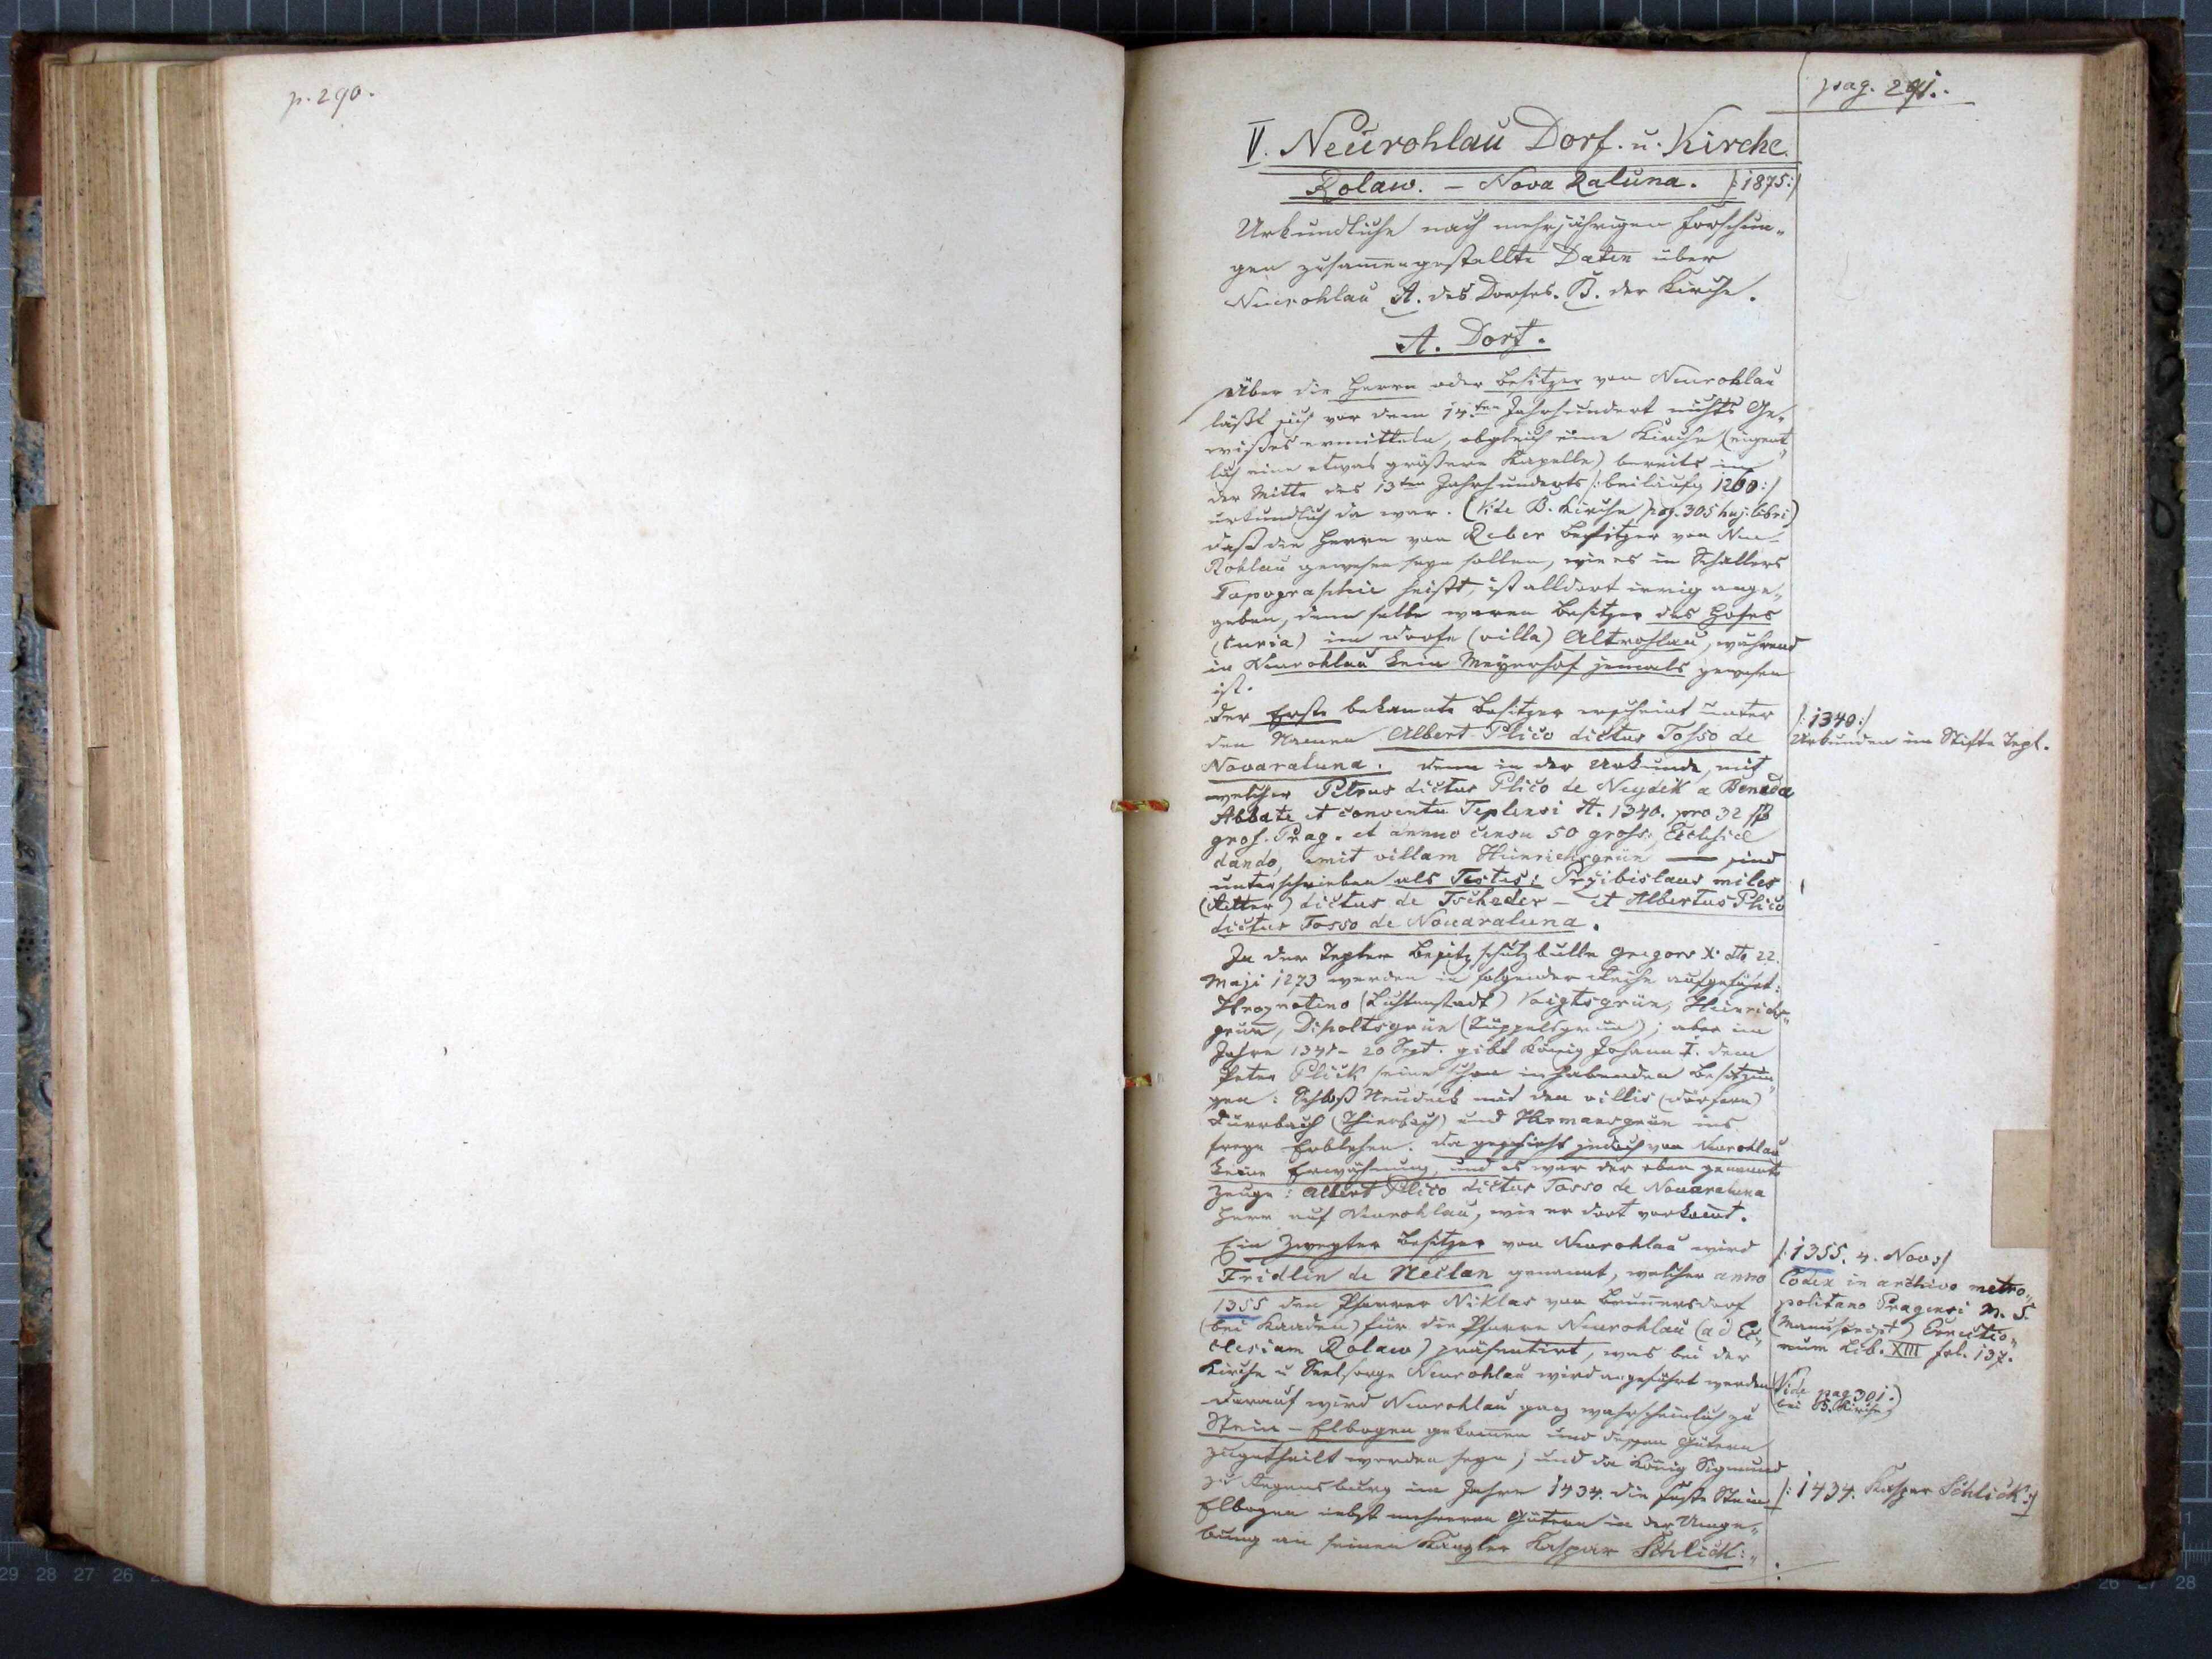 p. 290.
pag. 291.
V. Neurohlau Dorf. u. Kirche.
Rolaw. – Nova Raluna. /:1875:/
Urkundliche nach mehrjährigen Forschun„
gen zusam̄engestellte Daten über
Neurohlau A. des Dorfes. B. der Kirche.
A. Dorf.
Über die Herrn oder Besitzer von Neurohlau
läßt sich vor dem 14ten Jahrhundert nichts Ge„
wißes ermitteln, obgleich eine Kirche (eigent„
lich eine etwas größere Kapelle) bereits in
der Mitte des 13ten Jahrhunderts /:beiläufig 1260:/
urkundlich da war. (Vide B. Kirche pag. 305 huj. libri)
daß die Herrn von Reber Besitzer von Neu-
Rohlau gewesen seyn sollen, wie es in Schallers
Topographie heißt, ist alldort irrig ange„
geben, denn selbe waren Besitzer des Hofes
(curia) im Dorfe (villa) Altrohlau, während
in Neurohlau kein Meyerhof jemals gewesen
ist.
Der Erste bekannte Besitzer erscheint unter
den Namen Albert Plico dictus Tosso de
Novaraluna. denn in der Urkunde, mit
welcher Petrus dictus Plico de Neydek a Beneda
Abbate et conventu Teplensi A. 1340. pro 32 ßß
gros. Prag. et annuo censu 50 gross. Ecclesiæ
dando, emit villam Heinrichsgrün — sind
unterschrieben als Testes: Pržibislaus miles
(Ritter) dictus de Tscheder – et Albertus Plico
dictus Tosso de Nouaraluna.
In der Tepler Besitzschutzbulle Gregors X. dto 22.
Maji 1273 werden in folgender Reihe aufgeführt:
Hroznetino (Lichtenstadt) Voigtsgrün, Heinrichs„
grün, Dipoltsgrün (Tüppelsgrün); aber im
Jahre 1341 – 20 Sept. gibt König Johann I. dem
Peter Plick seine schon inhabenden Besitzun„
gen: Schloß Neudeck mit den villis (Dörfern)
Dürrbach (Thierbach) und Hermansgrün ins
freye Erblehen. Da geschieht jedoch von Neurohlau
keine Erwähnung, und es war der eben genannte
Zeuge: Albert Plico dictus Tosso de Nouaraluna
Herr auf Neurohlau, wie er dort vorkom̄t.
Ein Zweyter Besitzer von Neurohlau wird
Fridlin de Neclan genannt, welcher anno
1355 den Pfarrer Niklas von Brunnersdorf
(bei Kaaden) für die Pfarre Neurohlau (ad Ec„
clesiam Rolaw) präsentirt, was bei der
Kirche u Seelsorge Neurohlau wird angeführt werden
Darauf wird Neurohlau ganz wahrscheinlich zu
Stein-Elbogen gekom̄en und dessen Gütern
zugetheilt worden seyn; und da König Sigmund
zu Regensburg im Jahre 1434. die Feste Stein-
Elbogen nebst mehreren Gütern in der Umge„
bung an seinen Kanzler Kaspar Schlick:„
/:1340:/
Urkunden im Stifte Tepl.
/:1355. 4. Nov:/
Codex in archivo metro„
politano Pragensi M. S.
(Manuscript) Erectio„
num Lib. XIII fol. 137.
(Vide pag 301.
bei B. Kirche)
/:1434. Kaspar Schlick:/